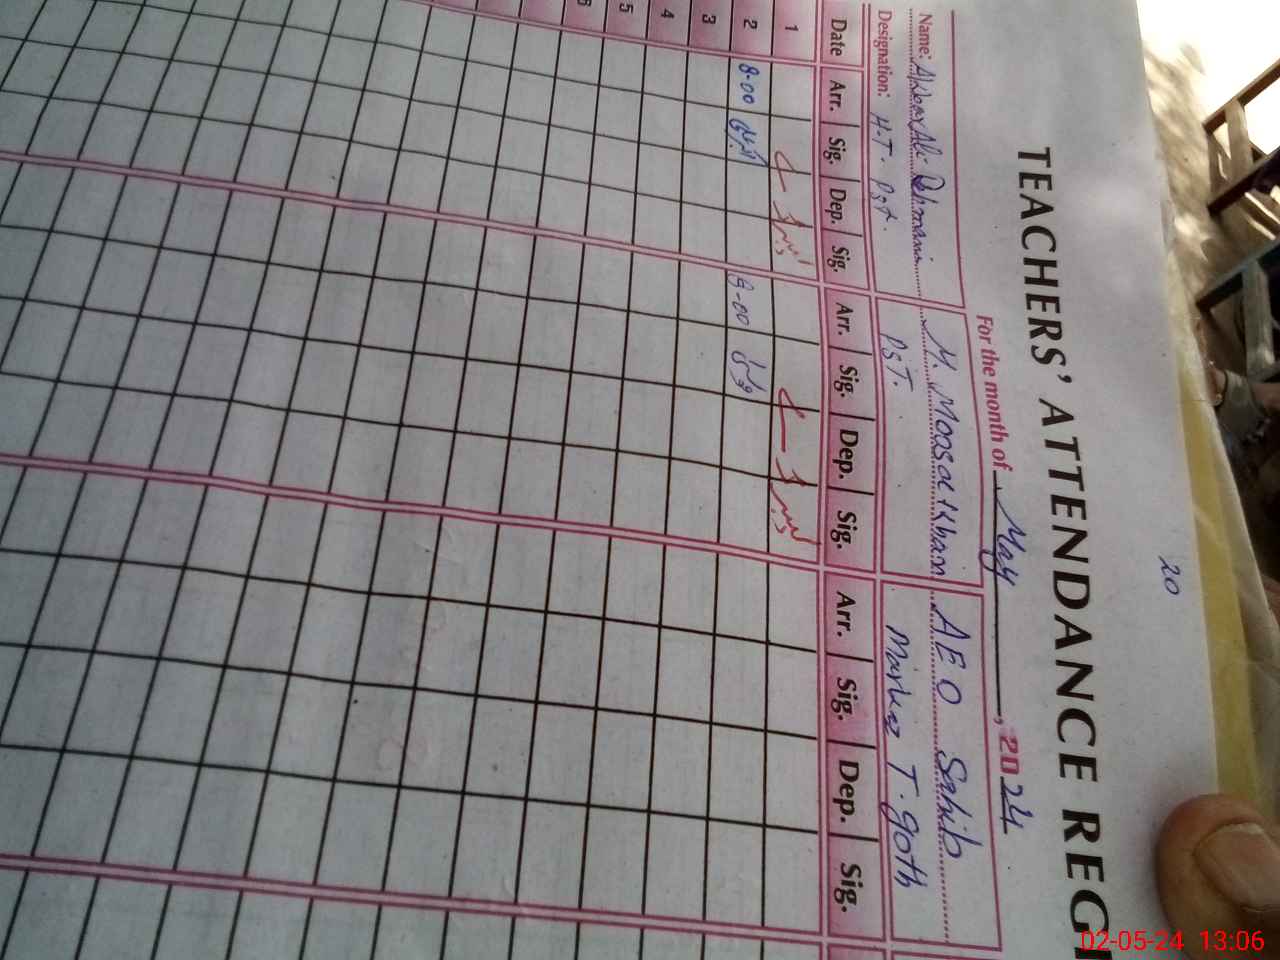 20
TEACHERS' ATTENDANCE REGI
For the month of May, 2024
Name: Akbar Ali Dahmani M. Moosa Khan AEO Sahib
Designation: H.T. Pst. PST. Markaz T. goth
Date Arr. Sig. Dep. Sig. Arr. Sig. Dep. Sig. Arr. Sig. Dep. Sig.
1
2 8-00 8-00
3
4
5
6
02-05-24 13:06